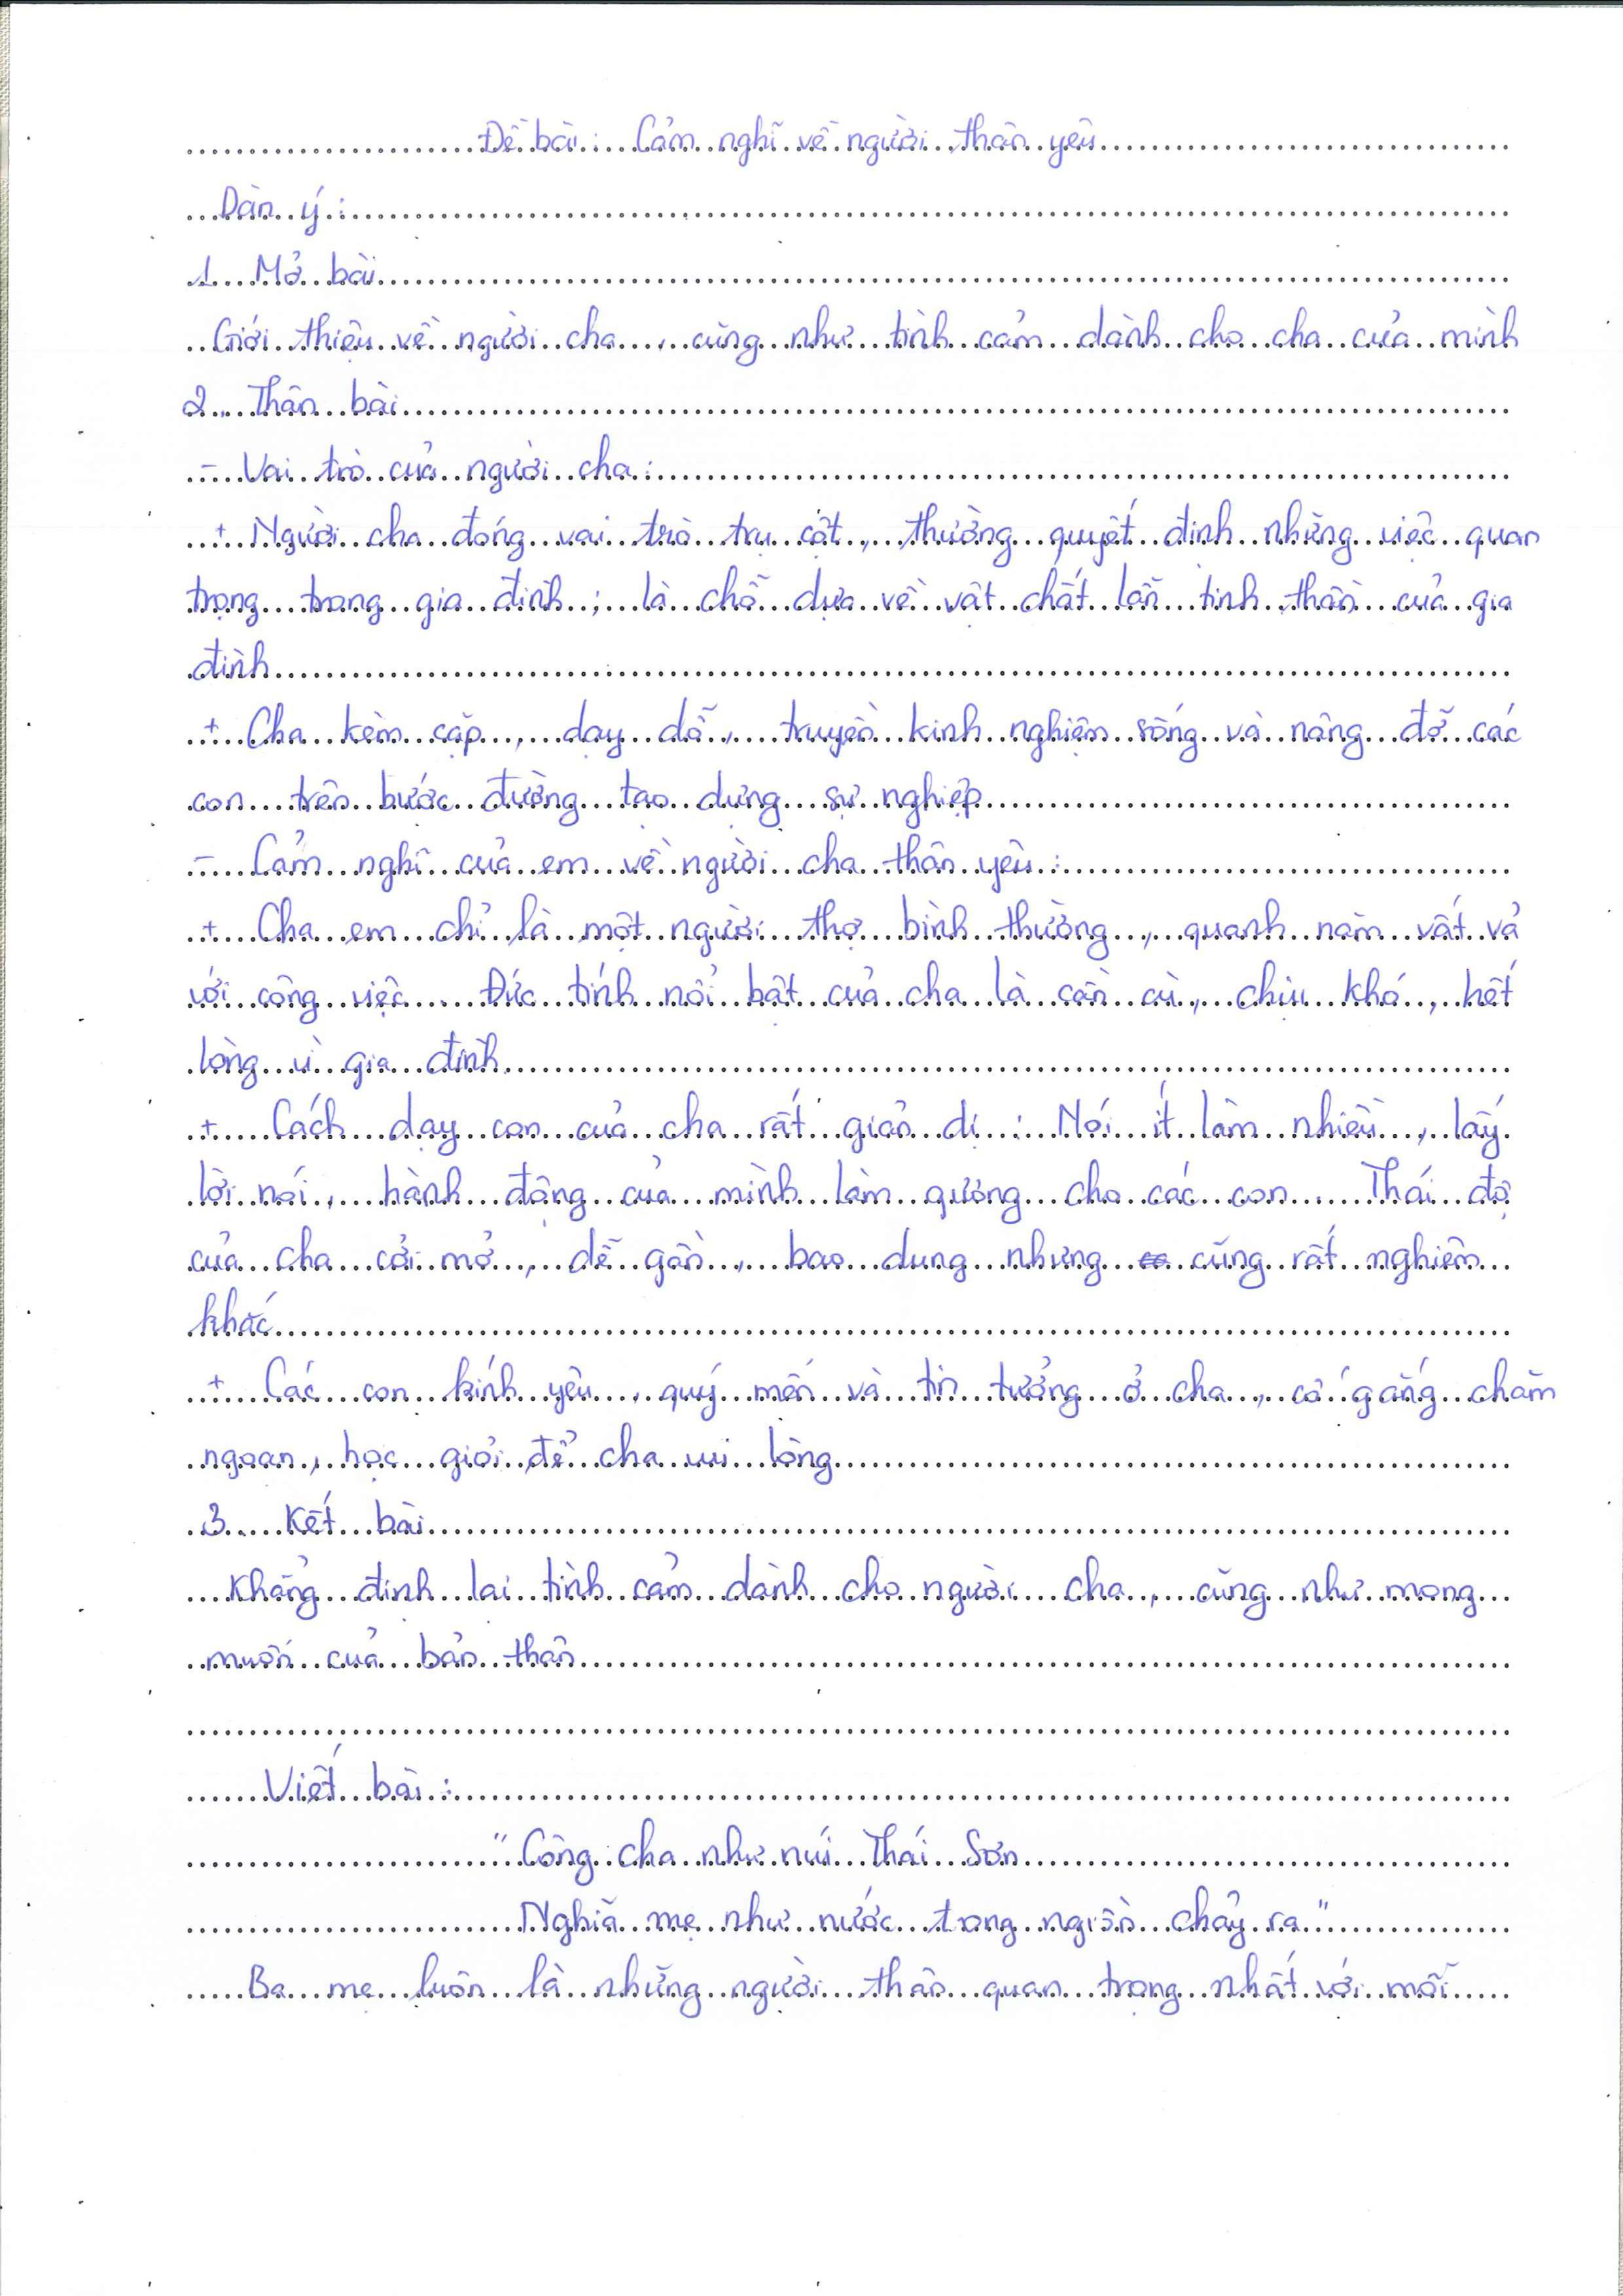 Đề bài: Cảm nghĩ về người thân yêu
Dàn ý:
1. Mở bài
Giới thiệu về người cha, cũng như tình cảm dành cho cha của mình
2. Thân bài
- Vai trò của người cha:
+ Người cha đóng vai trò trụ cột, thường quyết định những việc quan
trọng trong gia đình; là chỗ dựa về vật chất lẫn tinh thần của gia
đình
+ Cha kèm cặp, dạy dỗ, truyền kinh nghiệm sống và nâng đỡ các
con trên bước đường tạo dựng sự nghiệp
- Cảm nghĩ của em về người cha thân yêu:
+ Cha em chỉ là một người thợ bình thường, quanh năm vất vả
với công việc. Đức tính nổi bật của cha là cần cù, chịu khó, hết
lòng vì gia đình.
+ Cách dạy con của cha rất giản dị: Nói ít làm nhiều, lấy
lời nói, hành động của mình làm gương cho các con. Thái độ
của cha cởi mở, dễ gần, bao dung nhưng cũng rất nghiêm
khắc
+ Các con kính yêu, quý mến và tin tưởng ở cha, cố gắng chăm
ngoan, học giỏi để cha vui lòng
3. Kết bài
Khẳng định lại tình cảm dành cho người cha, cũng như mong
muốn của bản thân
Viết bài:
"Công cha như núi Thái Sơn
Nghĩa mẹ như nước trong nguồn chảy ra"
Ba mẹ luôn là những người thân quan trọng nhất với mỗi